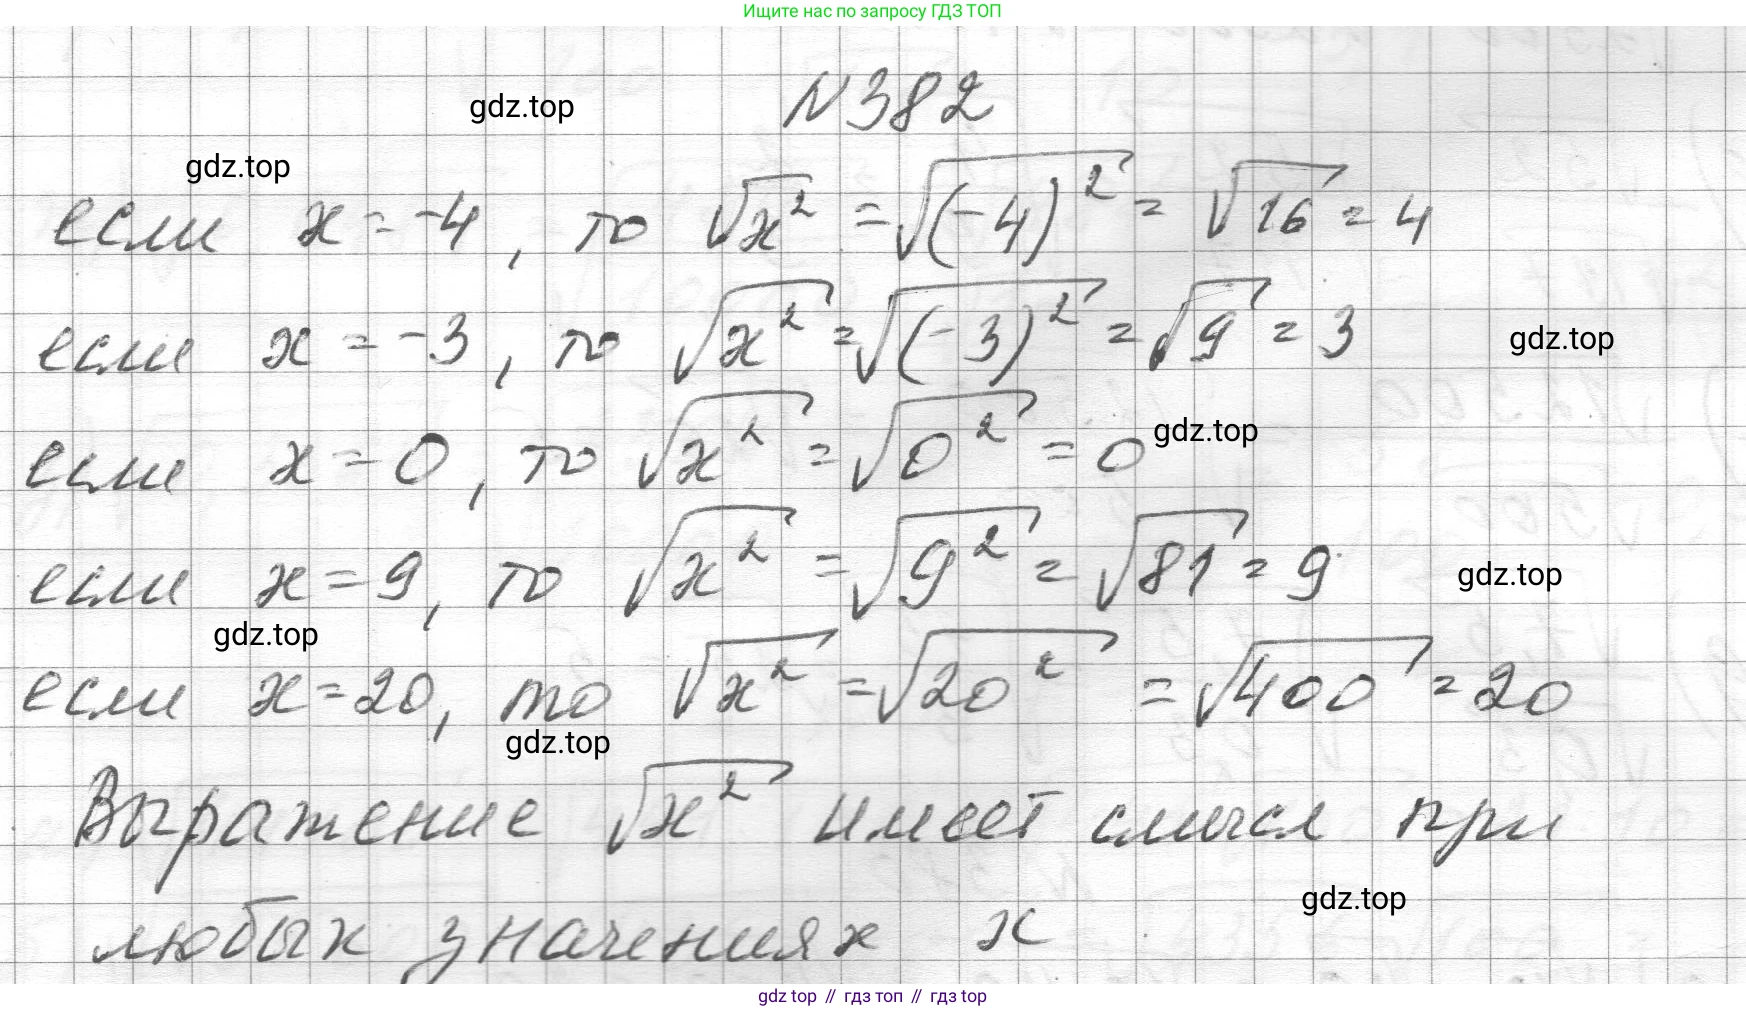 Ищите нас по запросу ГДЗ ТОП
N382
gdz.top
gdz.top
если x = -4, то √x² = √(-4)² = √16 = 4
если x = -3, то √x² = √(-3)² = √9 = 3
gdz.top
если x = 0, то √x² = √0² = 0
gdz.top
если x = 9, то √x² = √9² = √81 = 9
gdz.top
gdz.top
если x = 20, то √x² = √20² = √400 = 20
gdz.top
Выражение √x² имеет смысл при
gdz.top
любых значениях x
gdz top // гдз топ // гдз top